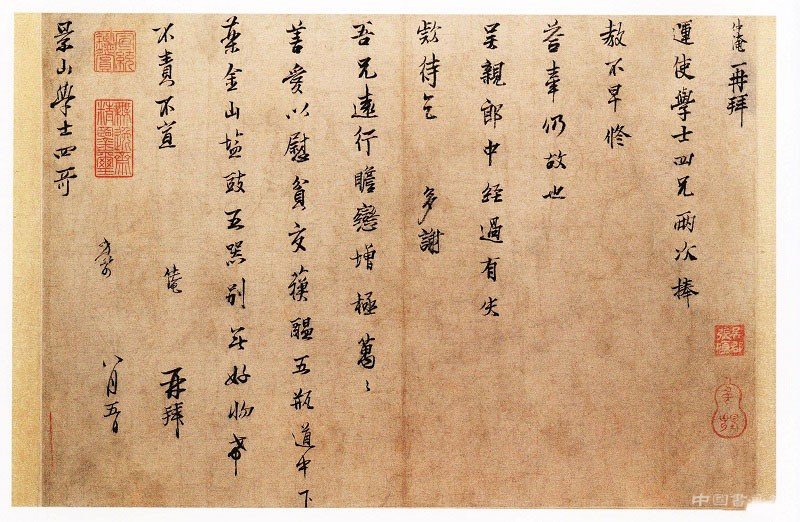 仲淹再拜
運使學士四兄兩次捧
教不早修
荅牽仍故也
吴親郎中經過有失
欵待乞　多謝
吾兄遠行瞻戀增極萬〻
善愛以慰貧交蘇醖五瓶道中下
藥金山塩豉五器别無好物希
不責不宣　仲淹　再拜
景山學士四哥
八月五日